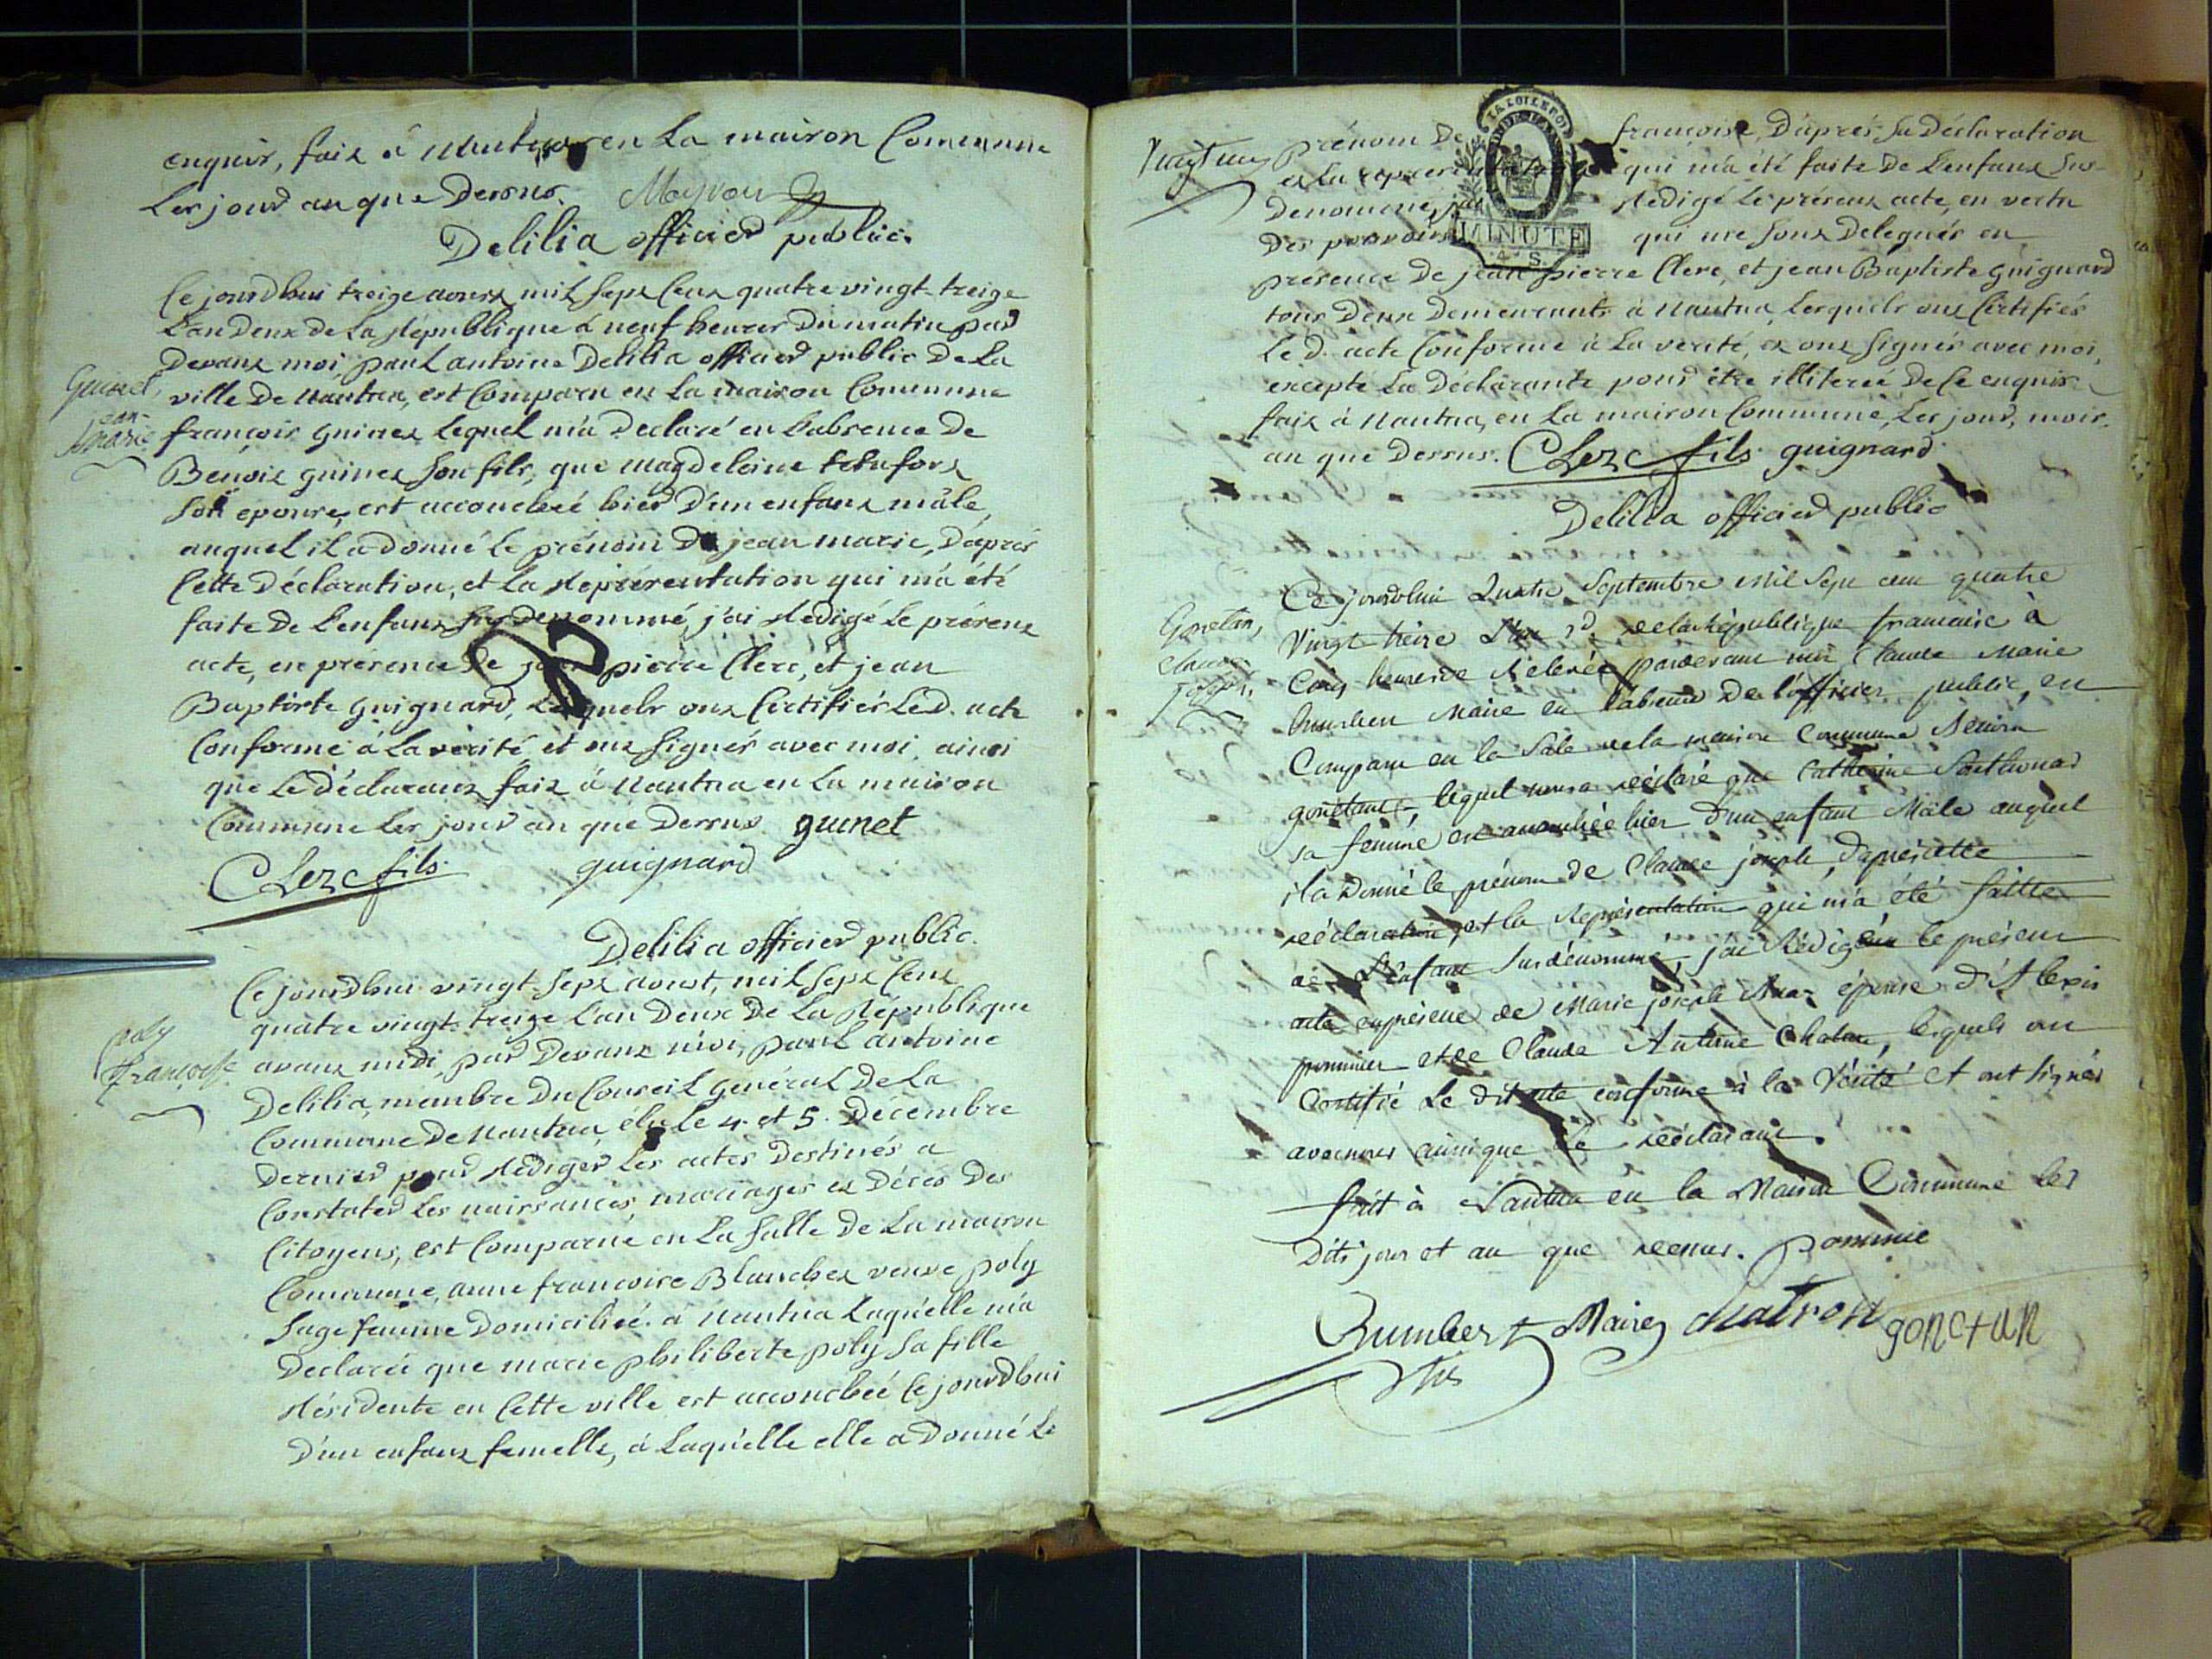 enquis, fait à Nantua en La maison Commune
Les jour an que Dessus. Mayrou
Delilia officier public.
Ce jourdhui treize aoust mil sept Cent quatre vingt-treize
L'an Deux de La République à neuf heures Du matin par
Devant moi, paul antoine Delilia officier public De La
ville De Nantua, est Comparu en La maison Commune
françois guinet Lequel m'a Declaré en L'absence de
Benoit guinet son fils, que magdeleine
son epouse, est accouchée hier D'un enfant mâle,
auquel il a Donné Le prénom De jean marie, D'après
Cette Déclaration, et La Représentation qui m'a été
faite De L'enfant susdenommé, j'ai Redigé Le présent
acte, en présence de jean pierre Clerc, et jean
Baptiste guignard, Lesquels ont Certifiés Led. acte
Conforme à La vérité et ont signés avec moi ainsi
que Le Déclarant, fait à Nantua en La maison
Commune Les jour an que Dessus guinet
CLerc fils guignard
Delilia officier public.
guinet,
jean-
marie
Ce jourdhui vingt-sept aoust, mil sept Cent
quatre vingt-treize L'an Deux De La République
avant midi, par Devant moi, paul antoine
Delilia, membre Du Conseil général De La
Commune De Nantua, élu Le 4 et 5. Décembre
Dernier pour Rediger Les actes Destinés a
Constater Les naissances, mariages et Décès Des
Citoyens, est Comparue en La salle De La maison
Commune, anne françoise Blanchet veuve poly
sage femme Domiciliée à Nantua Laquelle m'a
Declarée que marie philiberte poly sa fille
Résidente en Cette ville est accouchée Ce jourdhui
D'un enfant femelle, à Laquelle elle a Donné Le
poly
françoise
Vingt un
prénom De françoise, D'après sa Déclaration
et La qui m'a été faite De L'enfant sus-
Denommé, j'ai Redigé Le présent acte, en vertu
Des pouvoirs qui me sont Delegués en
LA LOI LE ROI
MINUTE
4. S.
présence De jean pierre Clerc, et jean Baptiste guignard
tous Deux Demeurants à Nantua, Lesquels ont Certifiés
Le d. acte Conforme à La verité, et ont signés avec moi,
excepté La Déclarante pour être illiterée De Ce enquis
fait à Nantua, en La maison Commune, Les jour, mois
an que Dessus. CLerc fils guignard
Delilia officier public
Ce jourdhui Quatre Septembre Mil Sept cent quatre
Vingt treize L'an 2d de la République francaise à
Cinq heures de Relevée pardevant moi Claude Marie
Humbert Maire en l'absence De l'officier public, en
Comparu en la Sale de la maison Commune
gonetant, lequel nous a déclaré que Catherine
sa femme est accouchée hier d'un enfant Mâle auquel
il a Donné le prénom de Claude joseph, d'après cette
déclaration, et la Représentation qui m'a été faitte
de L'enfant Susdénommé, j'ai Rédigé le présent
acte en présence de Marie josephe épouse d'Alexis
pommier et de Claude Antoine Chatron, lesquels ont
Certifié Le dit acte conforme à la Vérité et ont signés
avec nous ainsi que le déclarant.
fait à Nantua en la Maison Commune les
Dits jour et an que dessus. pommié
Humbert Maire chatron gonetan
Gonetan,
claude
joseph.